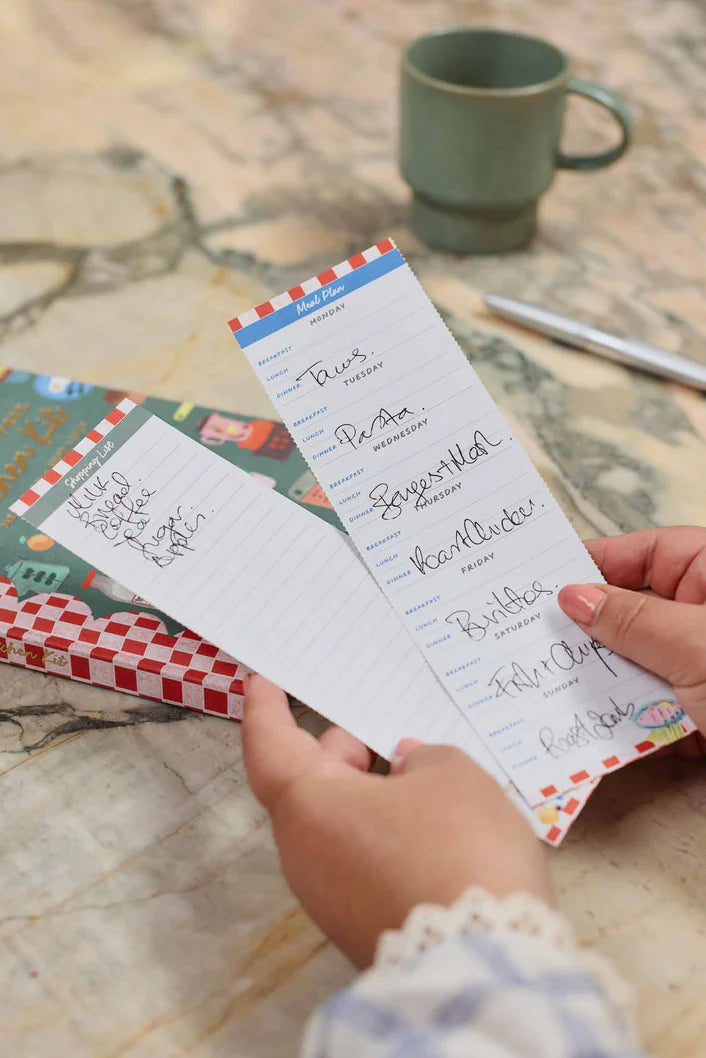 Kit
Kit
Shopping List
Milk
Bread
Coffee
Tea
Sugar.
Apples.
Meal Plan
MONDAY
BREAKFAST
LUNCH
DINNER Tacos.
TUESDAY
BREAKFAST
LUNCH
DINNER Pasta.
WEDNESDAY
BREAKFAST
LUNCH
DINNER Sausages + Mash.
THURSDAY
BREAKFAST
LUNCH
DINNER Roast Chicken.
FRIDAY
BREAKFAST
LUNCH
DINNER Burritos.
SATURDAY
BREAKFAST
LUNCH
DINNER Fish + Chips
SUNDAY
BREAKFAST
LUNCH
DINNER Roast Lamb